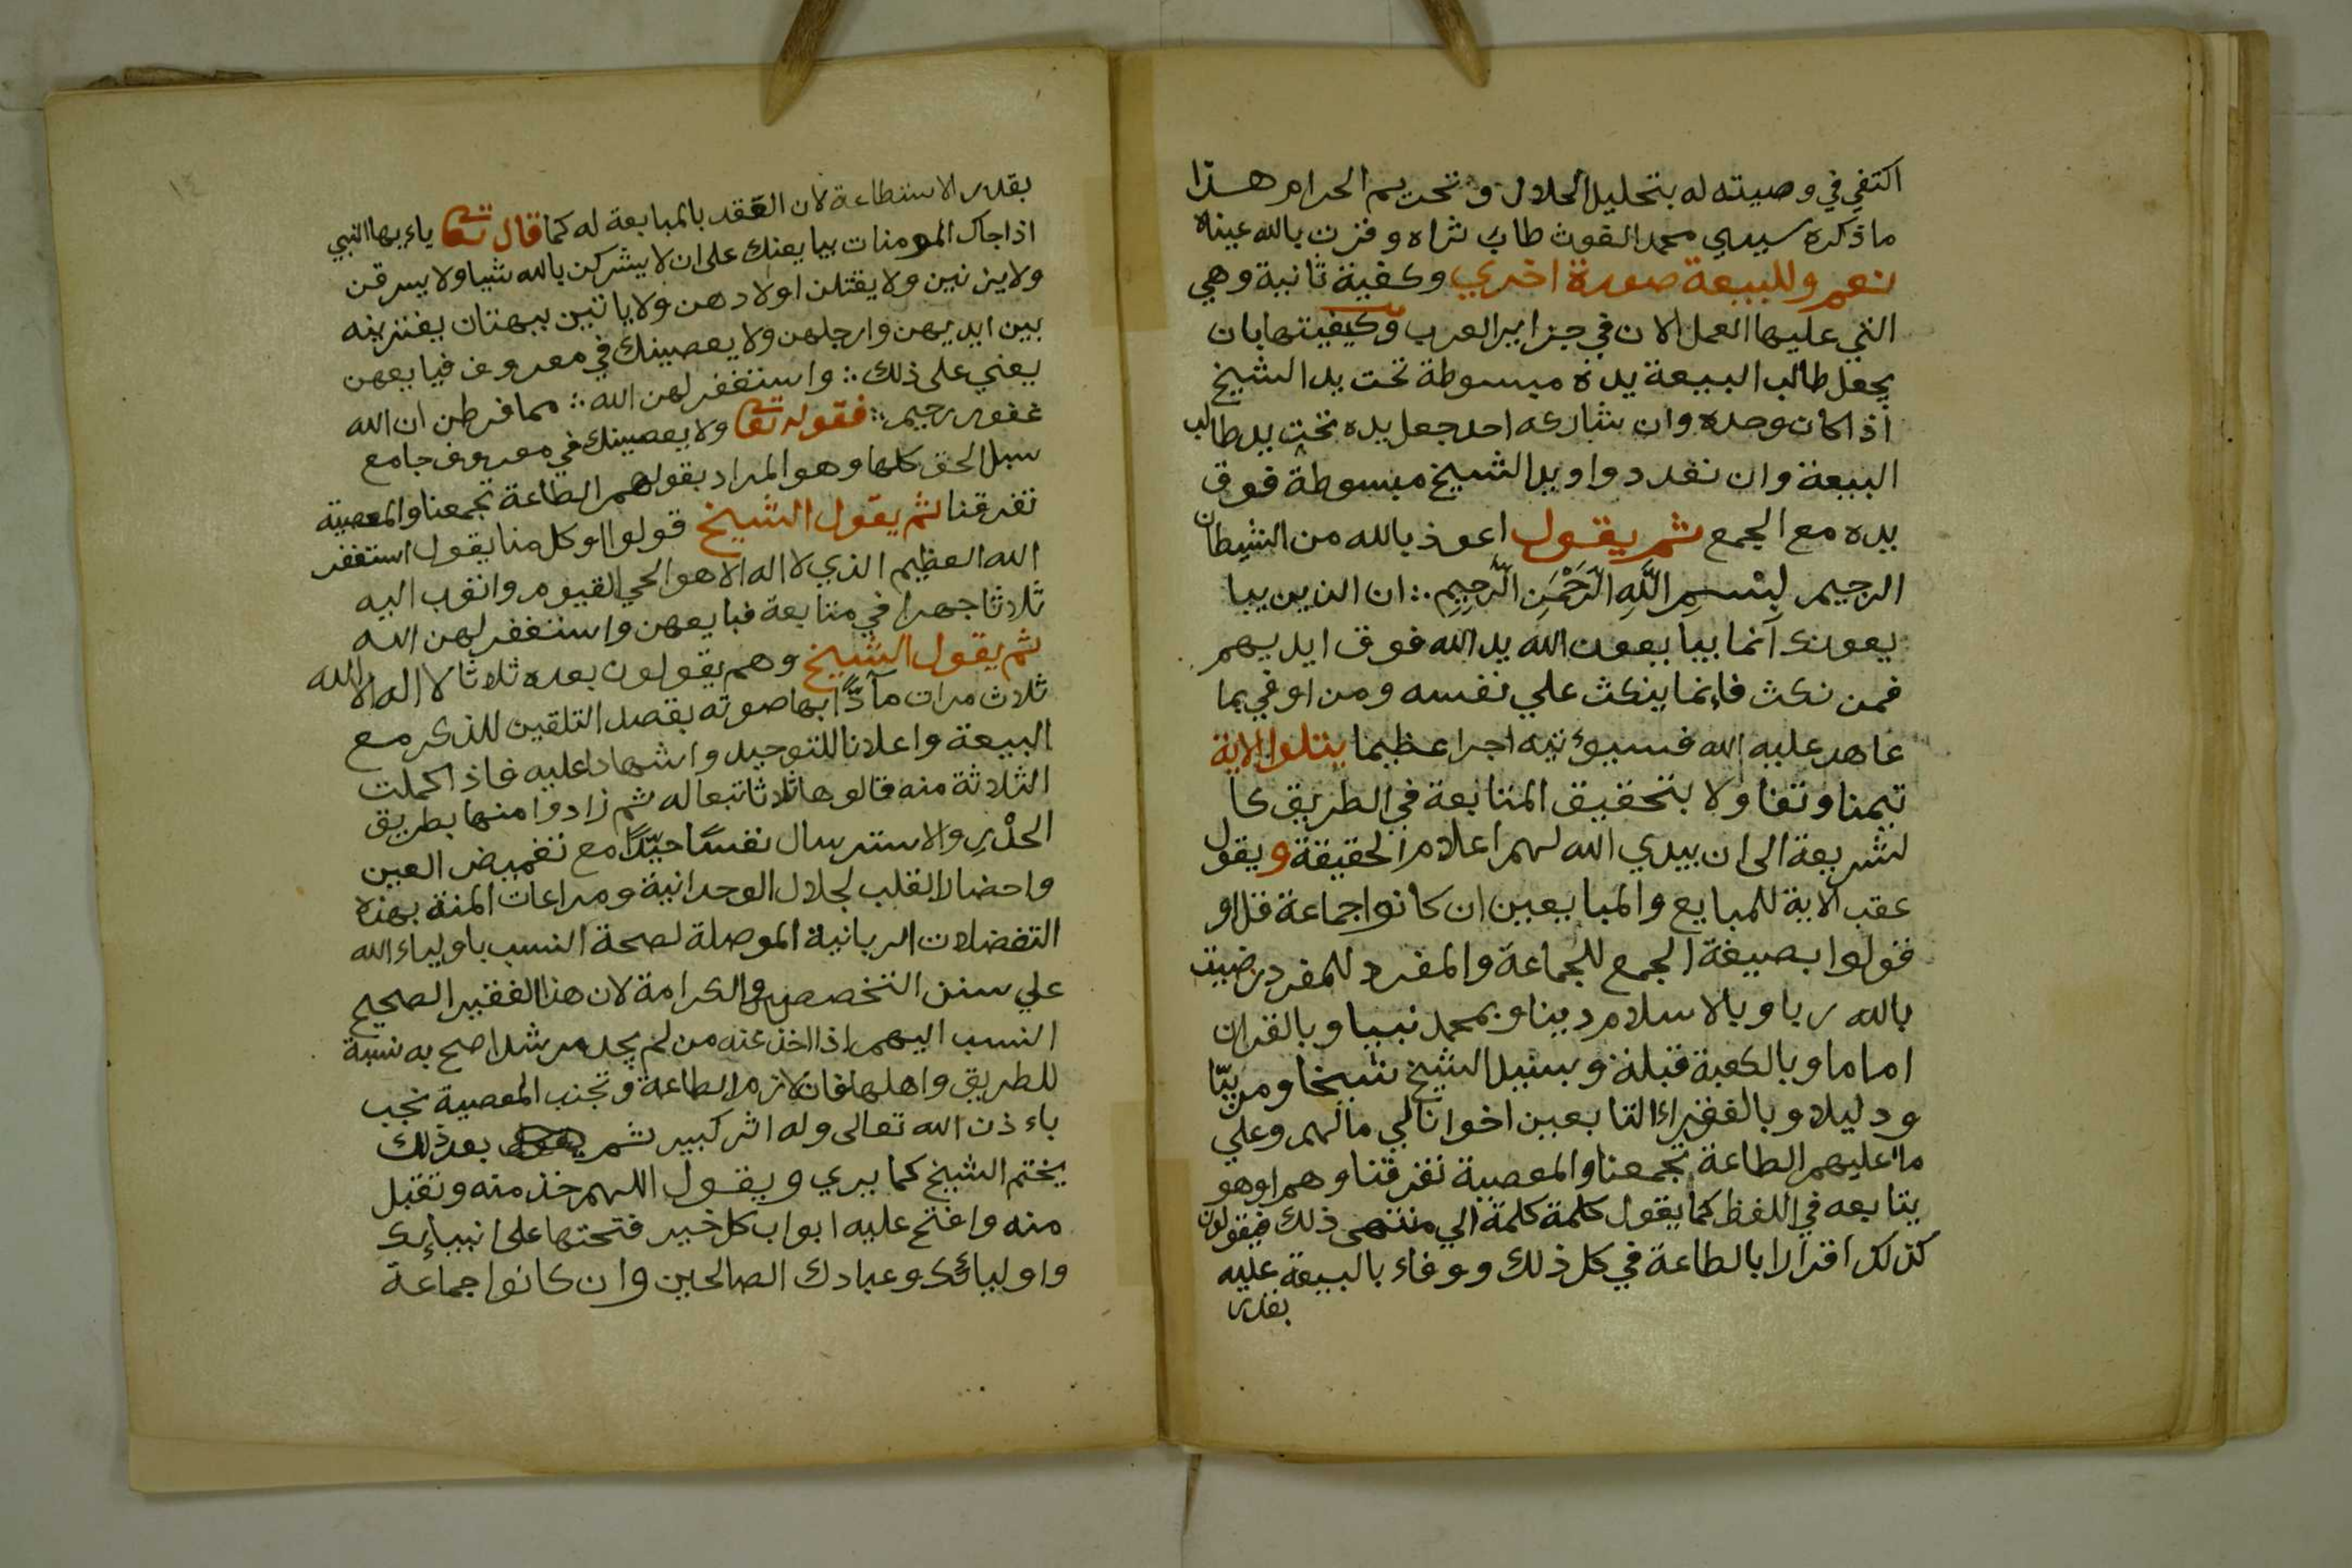 اكتفي في وصيته له بتحليل الحلال وتحريم الحرام هذا
ما ذكره سيدي محمد الغوث طاب ثراه وفزت بالله عيناه
نعم وللبيعة صورة اخري وكفية ثانية وهي
التي عليها العمل الان في جزاير العرب وكيفيتها بان
يجعل طالب البيعة يده مبسوطة تحت يد الشيخ
اذا كان وحده وان شاركه احد جعل يده تحت يد طالب
البيعة وان تعددوا ويد الشيخ مبسوطة فوق
يده مع الجمع ثم يقول اعوذ بالله من الشيطان
الرجيم بِسْمِ اللَّهِ الرَّحْمَنِ الرَّحِيمِ ؞ ان الذين يبا
يعونك انما يبايعون الله يد الله فوق ايديهم
فمن نكث فانما ينكث علي نفسه ومن اوفي بما
عاهد عليه الله فسيوءتيه اجرا عظيما يتلوا الاية
تيمنا وتفاولا بتحقيق المتابعة في الطريق كا
لشريعة الى ان يبدي الله لهم اعلام الحقيقة ويقول
عقب الاية للمبايع والمبايعين ان كانوا جماعة قل او
قولوا بصيغة الجمع للجماعة والمفرد للمفرد رضيت
بالله ربا وبالاسلام دينا وبمحمد نبيا وبالقران
اماما وبالكعبة قبلة وبسيد الشيخ شيخا ومربيّا
ودليلا وبالفقراء التابعين اخوانا لي ما لهم وعلي
ما عليهم الطاعة تجمعنا والمعصية تفرقنا وهم او هو
يتابعه في اللفظ كما يقول كلمة كلمة الي منتهى ذلك فيقولون
كذلك اقرارا بالطاعة في كل ذلك ووفاء بالبيعة عليه
بقدر
١٤
بقدر الاستطاعة لان العقد بالمبايعة له كما قال تعا ياءيها النبي
اذا جاك المومنات يبايعنك على ان لا يشركن بالله شيا ولا يسرقن
ولا يزنين ولا يقتلن اولادهن ولا ياتين ببهتان يفترينه
بين ايديهن وارجلهن ولا يعصينك في معروف فبايعهن
يعني على ذلك ؞ واستغفر لهن الله ؞ مما فرطن ان الله
غفور رحيم ؞ فقوله تعا ولا يعصينك في معروف جامع
سبل الحق كلها وهو المراد بقولهم الطاعة تجمعنا والمعصية
تفرقنا ثم يقول الشيخ قولوا او كل منا يقول استغفر
الله العظيم الذي لا اله الا هو الحي القيوم واتوب اليه
ثلاثا جهرا في متابعة فبايعهن واستغفر لهن الله
ثم يقول الشيخ وهم يقولون بعده ثلاثا لا اله الا الله
ثلاث مرات مادًّا بها صوته بقصد التلقين للذكر مع
البيعة واعلانا للتوحيد واشهادا عليه فاذا كملت
الثلاثة منه قالوها ثلاثا تبعا له ثم زادوا منها بطريق
الحدْرِ والاسترسال نفسًا جيّدًا مع تغميض العين
واحضار القلب لجلال الوحدانية ومراعات المنة بهذه
التفضلات الربانية الموصلة لصحة النسب باولياء الله
علي سنن التخصص والكرامة لان هذا الفقير الصحيح
النسب اليهم اذا اخذ عنه من لم يجد مرشدا صح به نسبة
للطريق واهلها فان لازم الطاعة وتجنب المعصية نجب
باءذن الله تعالى وله اثر كبير ثم بعد ذلك
يختم الشيخ كما يري ويقول اللهم خذ منه وتقبل
منه وافتح عليه ابواب كل خير فتحتها على انبيائك
واوليائك وعبادك الصالحين وان كانوا جماعة